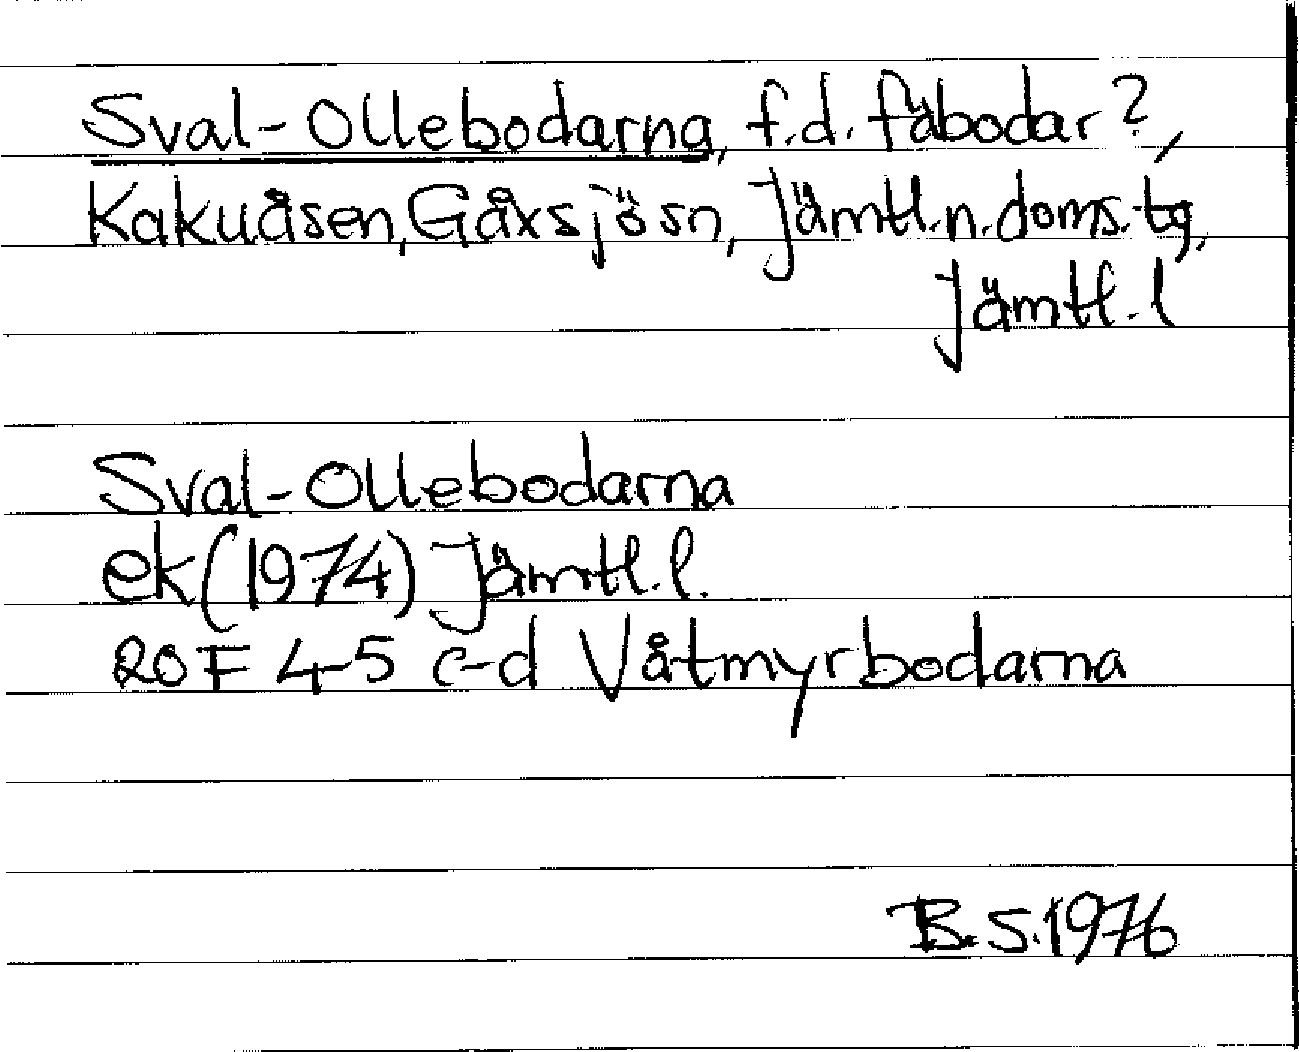 Sval-Ollebodarna, f.d. fäbodar?,
Kakuåsen, Gåxsjö sn, Jämtl. n. doms. tg,
Jämtl. l
Sval-Ollebodarna
ek (1974) Jämtl. l.
20F 4-5 c-d Våtmyrbodarna
B.S. 1976